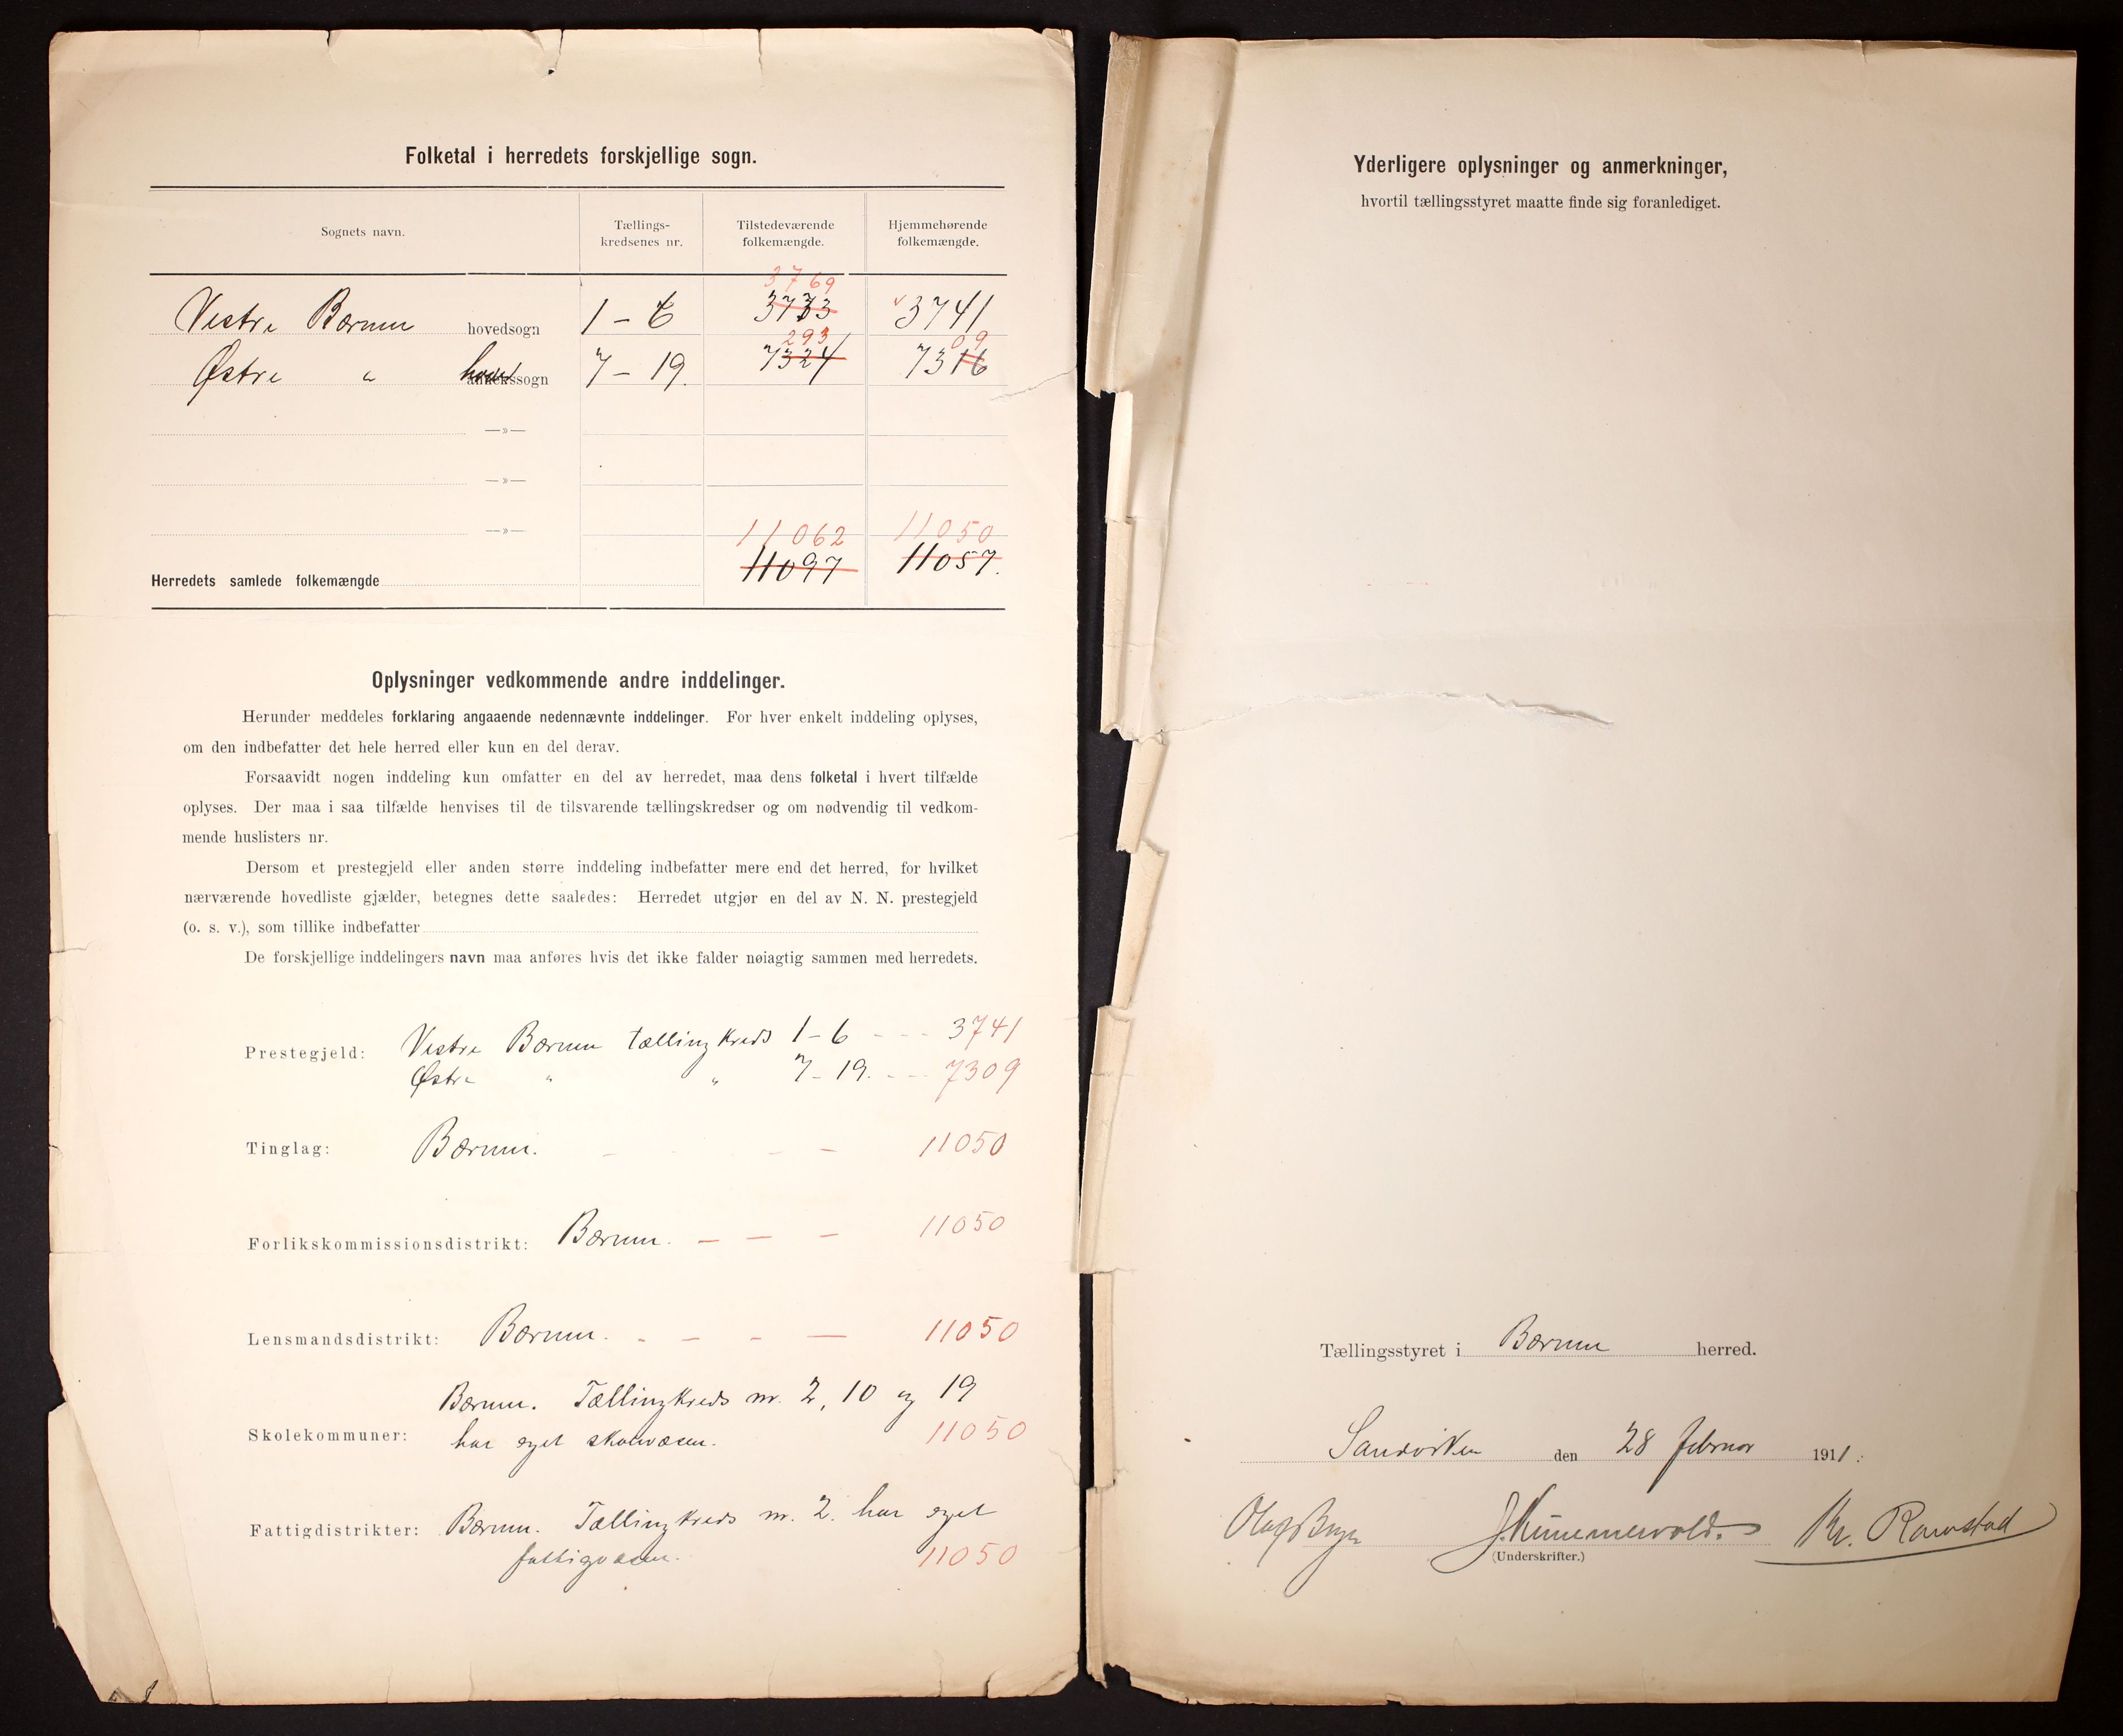 Folketal i herredets forskjellige sogn.
Sognets navn.
Tællings-
kredsenes nr.
Tilstedeværende
folkemængde.
Hjemmehørende
folkemængde.
3769
Vestre Bærum hovedsogn 1 – 6 3773 3741
293 09
Østre " hoved annekssogn 7 – 19. 7324 7316
—»—
—»—
—»—
11062 11050
Herredets samlede folkemængde 11097 11057.
Oplysninger vedkommende andre inddelinger.
Herunder meddeles forklaring angaaende nedennævnte inddelinger. For hver enkelt inddeling oplyses,
om den indbefatter det hele herred eller kun en del derav.
Forsaavidt nogen inddeling kun omfatter en del av herredet, maa dens folketal i hvert tilfælde
oplyses. Der maa i saa tilfælde henvises til de tilsvarende tællingskredser og om nødvendig til vedkom-
mende huslisters nr.
Dersom et prestegjeld eller anden større inddeling indbefatter mere end det herred, for hvilket
nærværende hovedliste gjælder, betegnes dette saaledes: Herredet utgjør en del av N. N. prestegjeld
(o. s. v.), som tillike indbefatter
De forskjellige inddelingers navn maa anføres hvis det ikke falder nøiagtig sammen med herredets.
Prestegjeld: Vestre Bærum tællingskreds 1 – 6 - - - 3741
Østre " " 7 – 19. - - - 7309
Tinglag: Bærum. – – – 11050
Forlikskommissionsdistrikt: Bærum. – – – 11050
Lensmandsdistrikt: Bærum. - – - — 11050
Bærum. Tællingskreds nr. 2, 10 og 19
Skolekommuner: har eget skolevæsen. 11050
Fattigdistrikter: Bærum. Tællingskreds nr. 2. har eget
fattigvæsen. 11050
Yderligere oplysninger og anmerkninger,
hvortil tællingsstyret maatte finde sig foranlediget.
Tællingsstyret i Bærum herred.
Sandviken den 28 februar 1911.
Kr. Ramstad
(Underskrifter.)